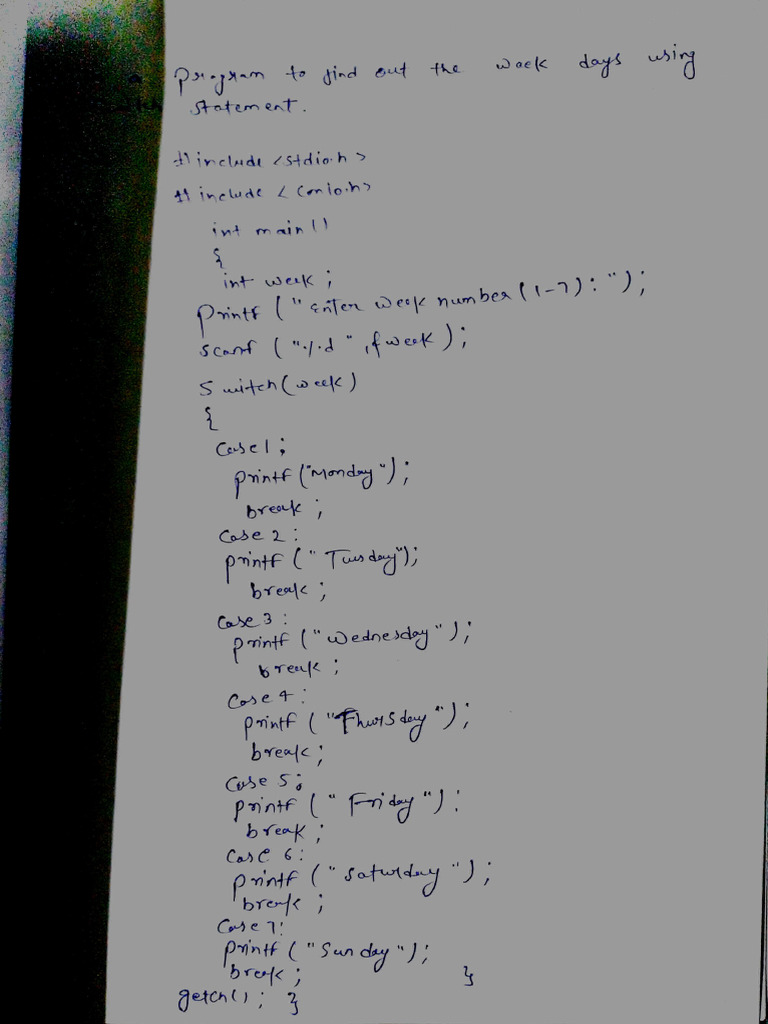 a program to find out the week days using
statement.
#include <stdio.h>
#include < conio.h>
int main()
{
int week ;
printf ("Enter week number (1-7): ");
scanf ("%d" ,&week );
Switch(week)
{
Case 1 ;
printf ("Monday");
break ;
Case 2 :
printf (" Tuesday");
break ;
Case 3 :
printf ("Wednesday");
break ;
Case 4 :
printf ("Thursday");
break ;
Case 5 ;
printf (" Friday") :
break ;
Case 6 :
printf ("Saturday");
break ;
Case 7:
printf ("Sunday");
break ; }
getch() ; }